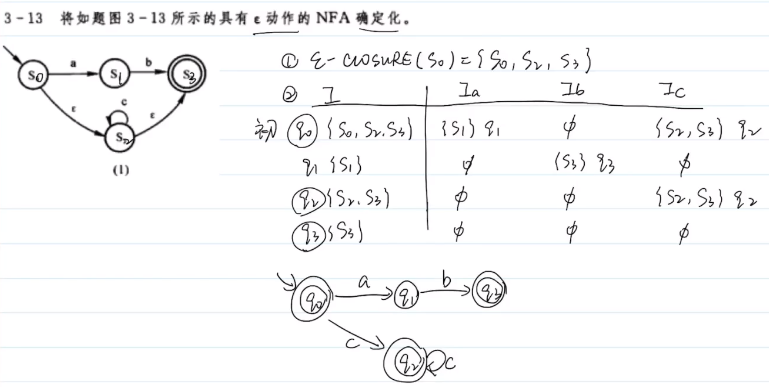 3-13 将如题图 3-13 所示的具有 ε 动作的 NFA 确定化。
S0 a S1 b S3
ε c ε
S2
(1)
① ε-CLOSURE(S0)={S0, S2, S3}
② I Ia Ib Ic
初 q0 {S0, S2, S3} {S1} q1 ∅ {S2, S3} q2
q1 {S1} ∅ {S3} q3 ∅
q2 {S2, S3} ∅ ∅ {S2, S3} q2
q3 {S3} ∅ ∅ ∅
q0 a q1 b q3
c q2 c